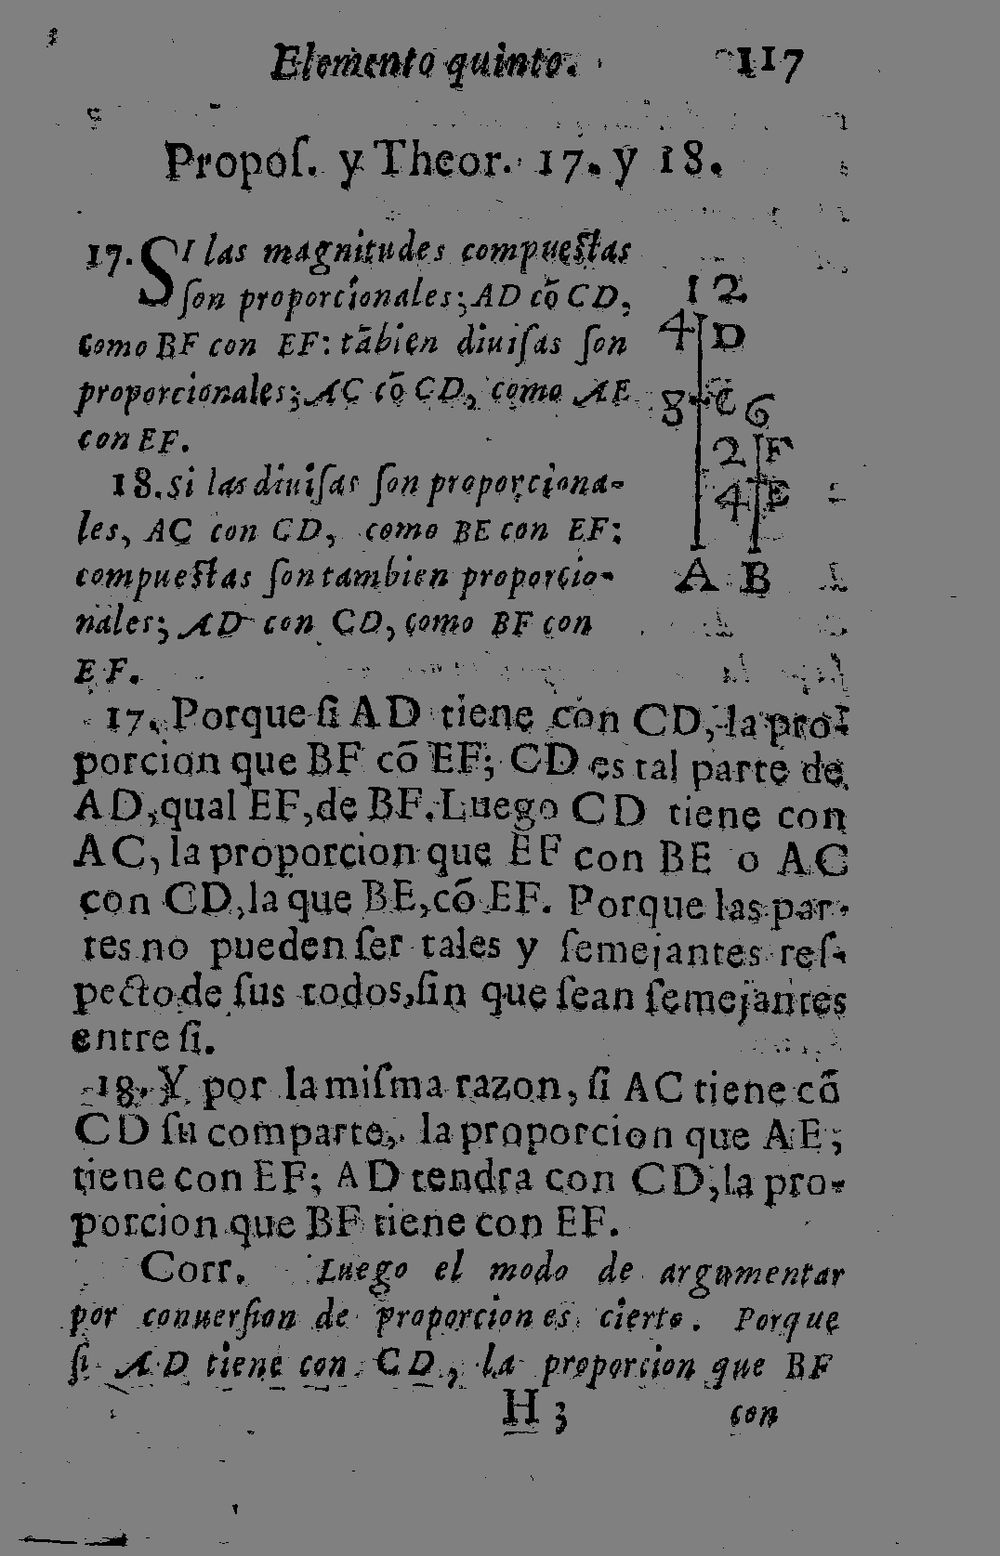 Elemento quinto. 117
Propoſ. y Theor. 17. y 18.
17. SI las magnitudes compueſtas
ſon proporcionales; AD cõ CD,
como BF con EF: tãbien diuiſas ſon
proporcionales; AC cõ CD, como AE
con EF.
18. Si las diuiſas ſon proporciona-
les, AC con CD, como BE con EF:
compueſtas ſon tambien proporcio-
nales; AD con CD, como BF con
EF.
12
4 D
8 C 6
2 F
4 E
A B
17. Porque ſi AD tiene con CD, la pro-
porcion que BF cõ EF; CD es tal parte de
AD, qual EF, de BF. Luego CD tiene con
AC, la proporcion que EF con BE o AC
con CD, la que BE, cõ EF. Porque las par-
tes no pueden ſer tales y ſemejantes reſ-
pecto de ſus todos, ſin que ſean ſemejantes
entre ſi.
18. Y por la miſma razon, ſi AC tiene cõ
CD ſu comparte, la proporcion que AE;
tiene con EF; AD tendra con CD, la pro-
porcion que BF tiene con EF.
Corr. Luego el modo de argumentar
por conuerſion de proporcion es cierto. Porque
ſi AD tiene con CD, la proporcion que BF
H 3 con